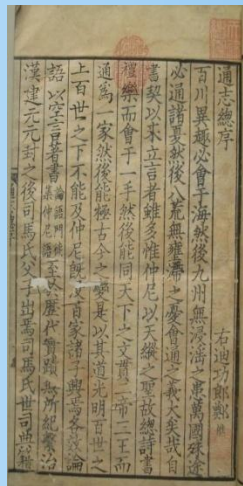 通志總序
右迪功郎鄭樵
百川異趨必會于海然後九州無浸淫之患萬國殊途
必通諸夏然後八荒無壅滯之憂會通之義大矣哉自
書契以來立言者雖多惟仲尼以天縱之聖故總詩書
禮樂而會于一手然後能同天下之文貫二帝三王而
通爲一家然後能極古今之變是以其道光明百世之
上百世之下不能及仲尼既沒百家諸子興焉各效論
語以空言著書論語門徒集仲尼語至於歷代實蹟無所紀繫洎
漢建元元封之後司馬氏父子出焉司馬氏世司典籍